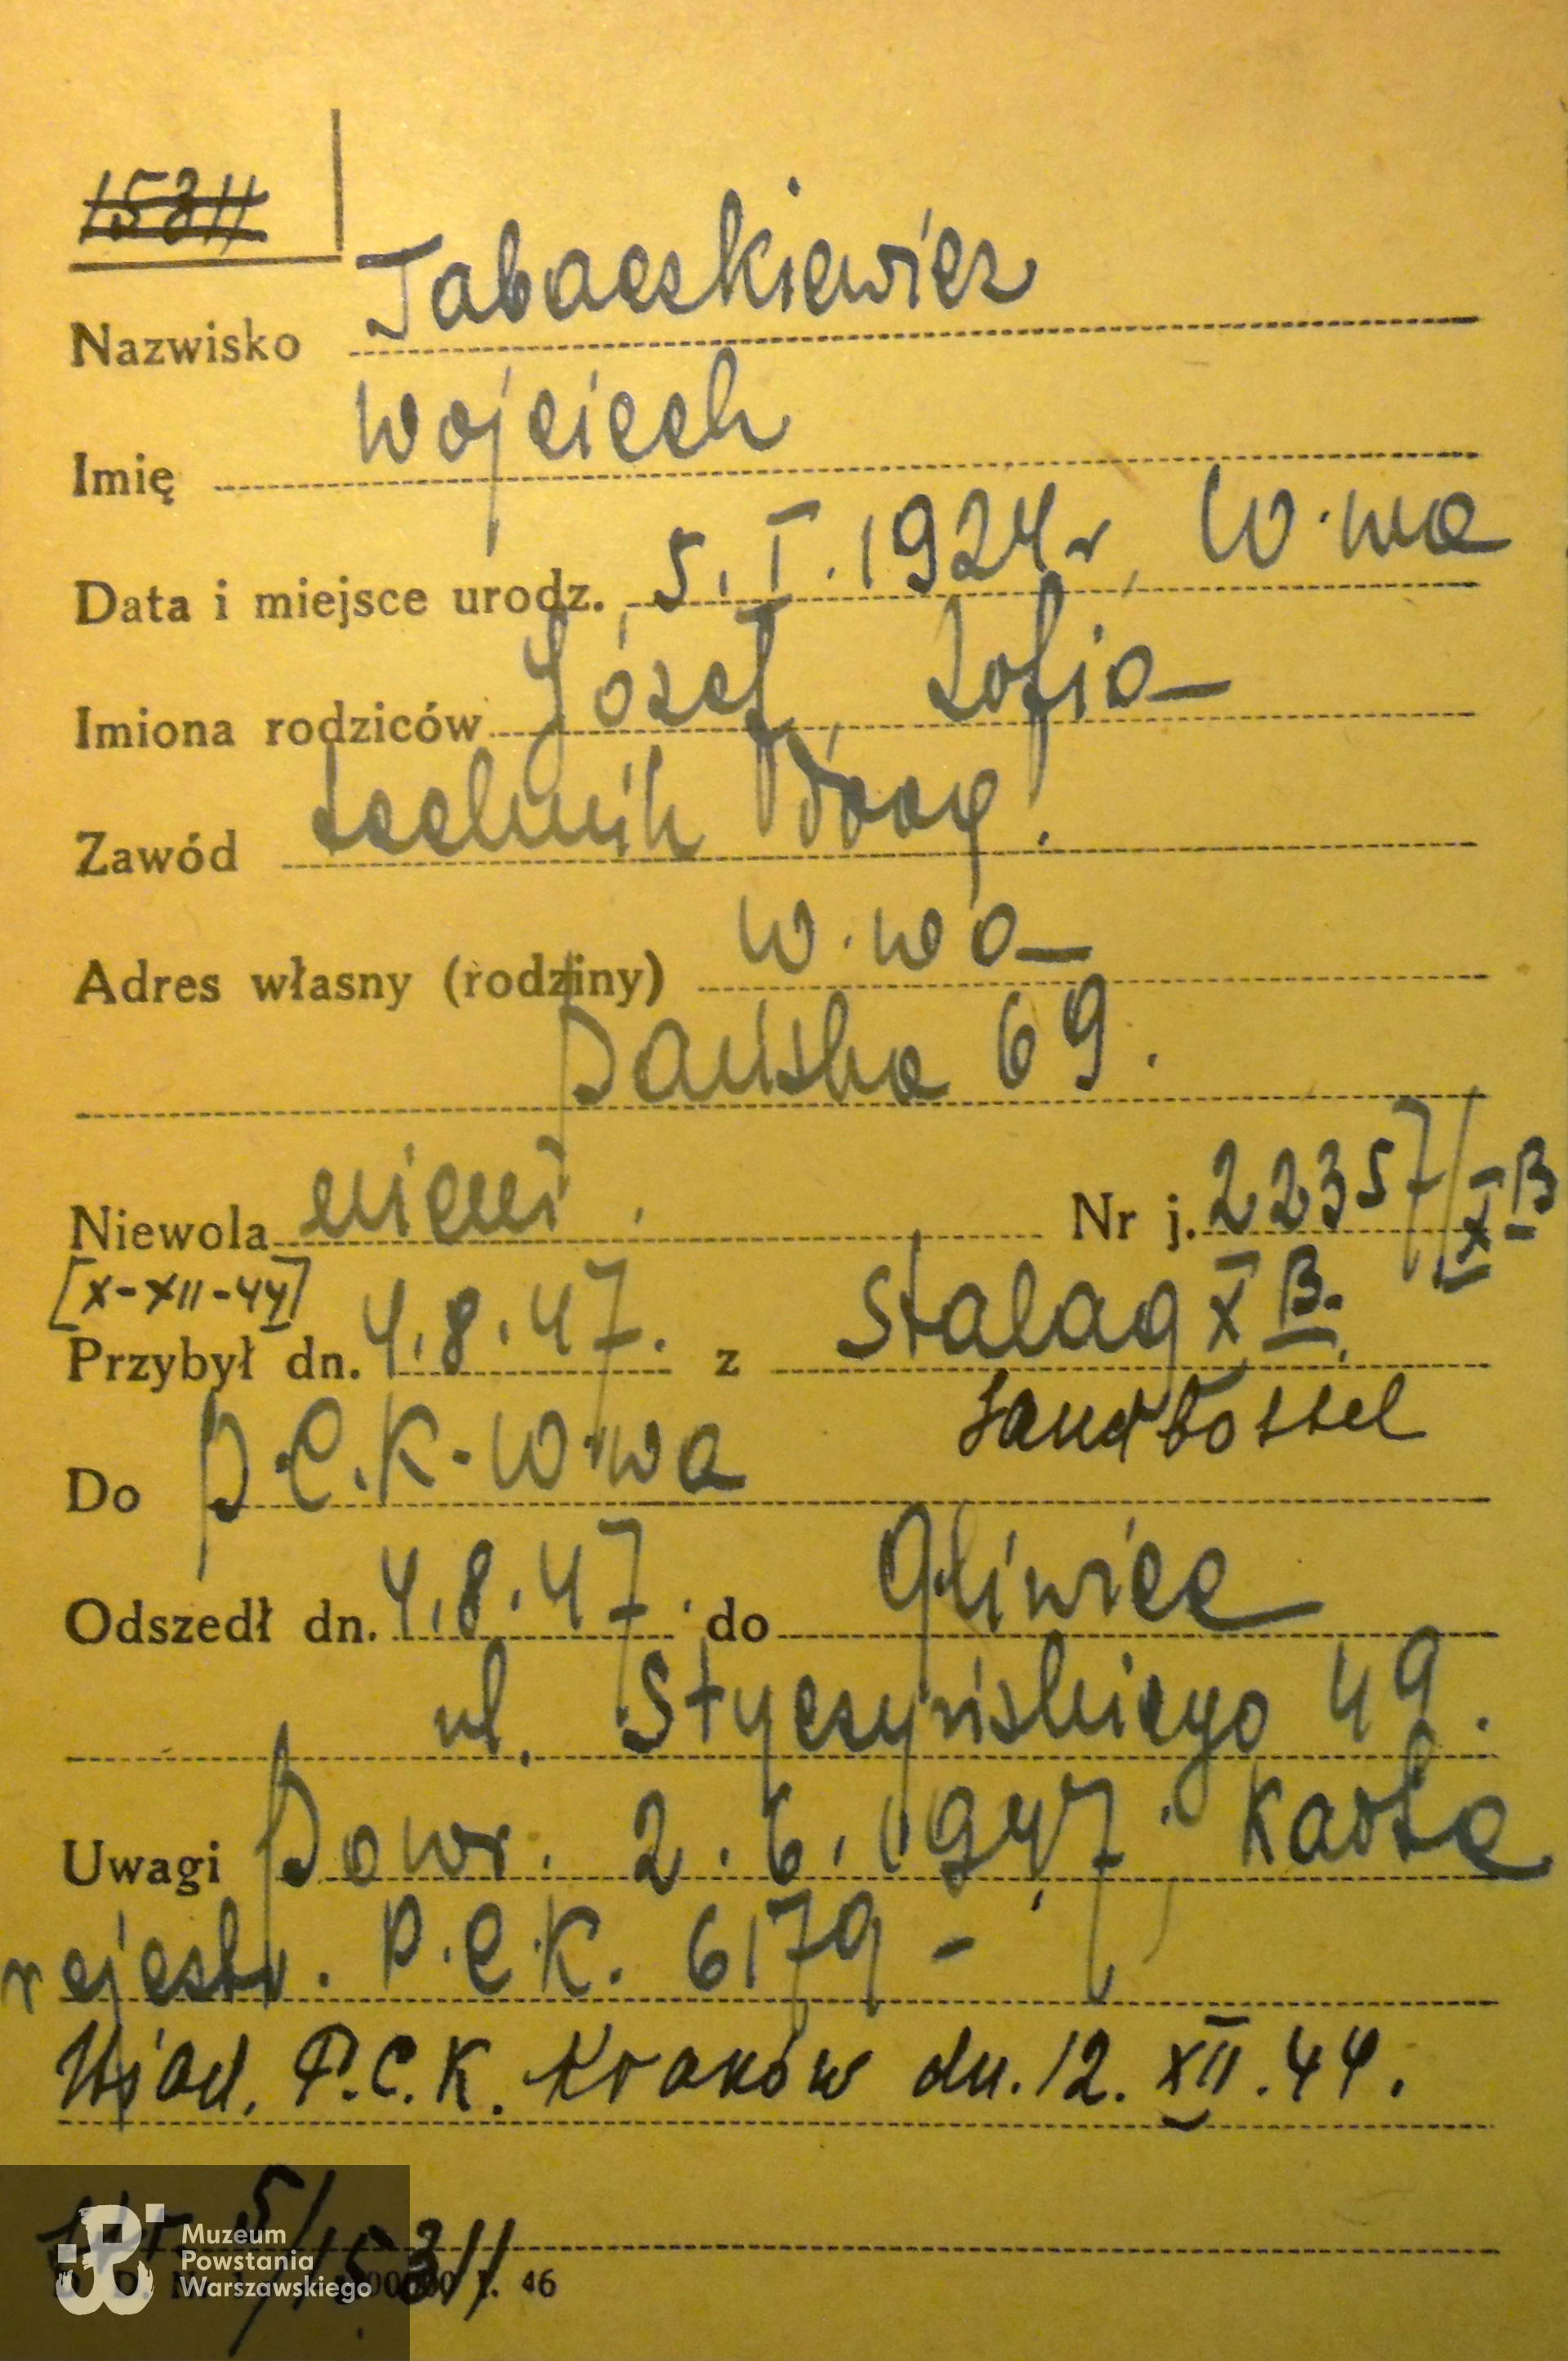 15311
Nazwisko Tabaczkiewicz
Imię Wojciech
Data i miejsce urodz. 5.I.1924r, W-wa
Imiona rodziców Józef, Zofia
Zawód technik drog.
Adres własny (rodziny) W-wa
Pańska 69.
Niewola niem. Nr j. 22357/XB
[X-XII-44]
Przybył dn. 4.8.47. z Stalag XB.
Sandbostel
Do P.C.K. W-wa
Odszedł dn. 4.8.47. do Gliwice
ul. Styczyńskiego 49.
Uwagi Powr. 2.6.1947, Karta
rejestr. P.C.K. 6179 -
Wiad. P.C.K. Kraków dn. 12.XII.44.
5/15311
46
Muzeum
Powstania
Warszawskiego